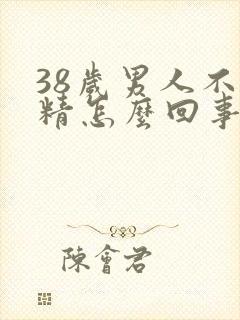 38歲男人不
精怎麼回事
陳會君